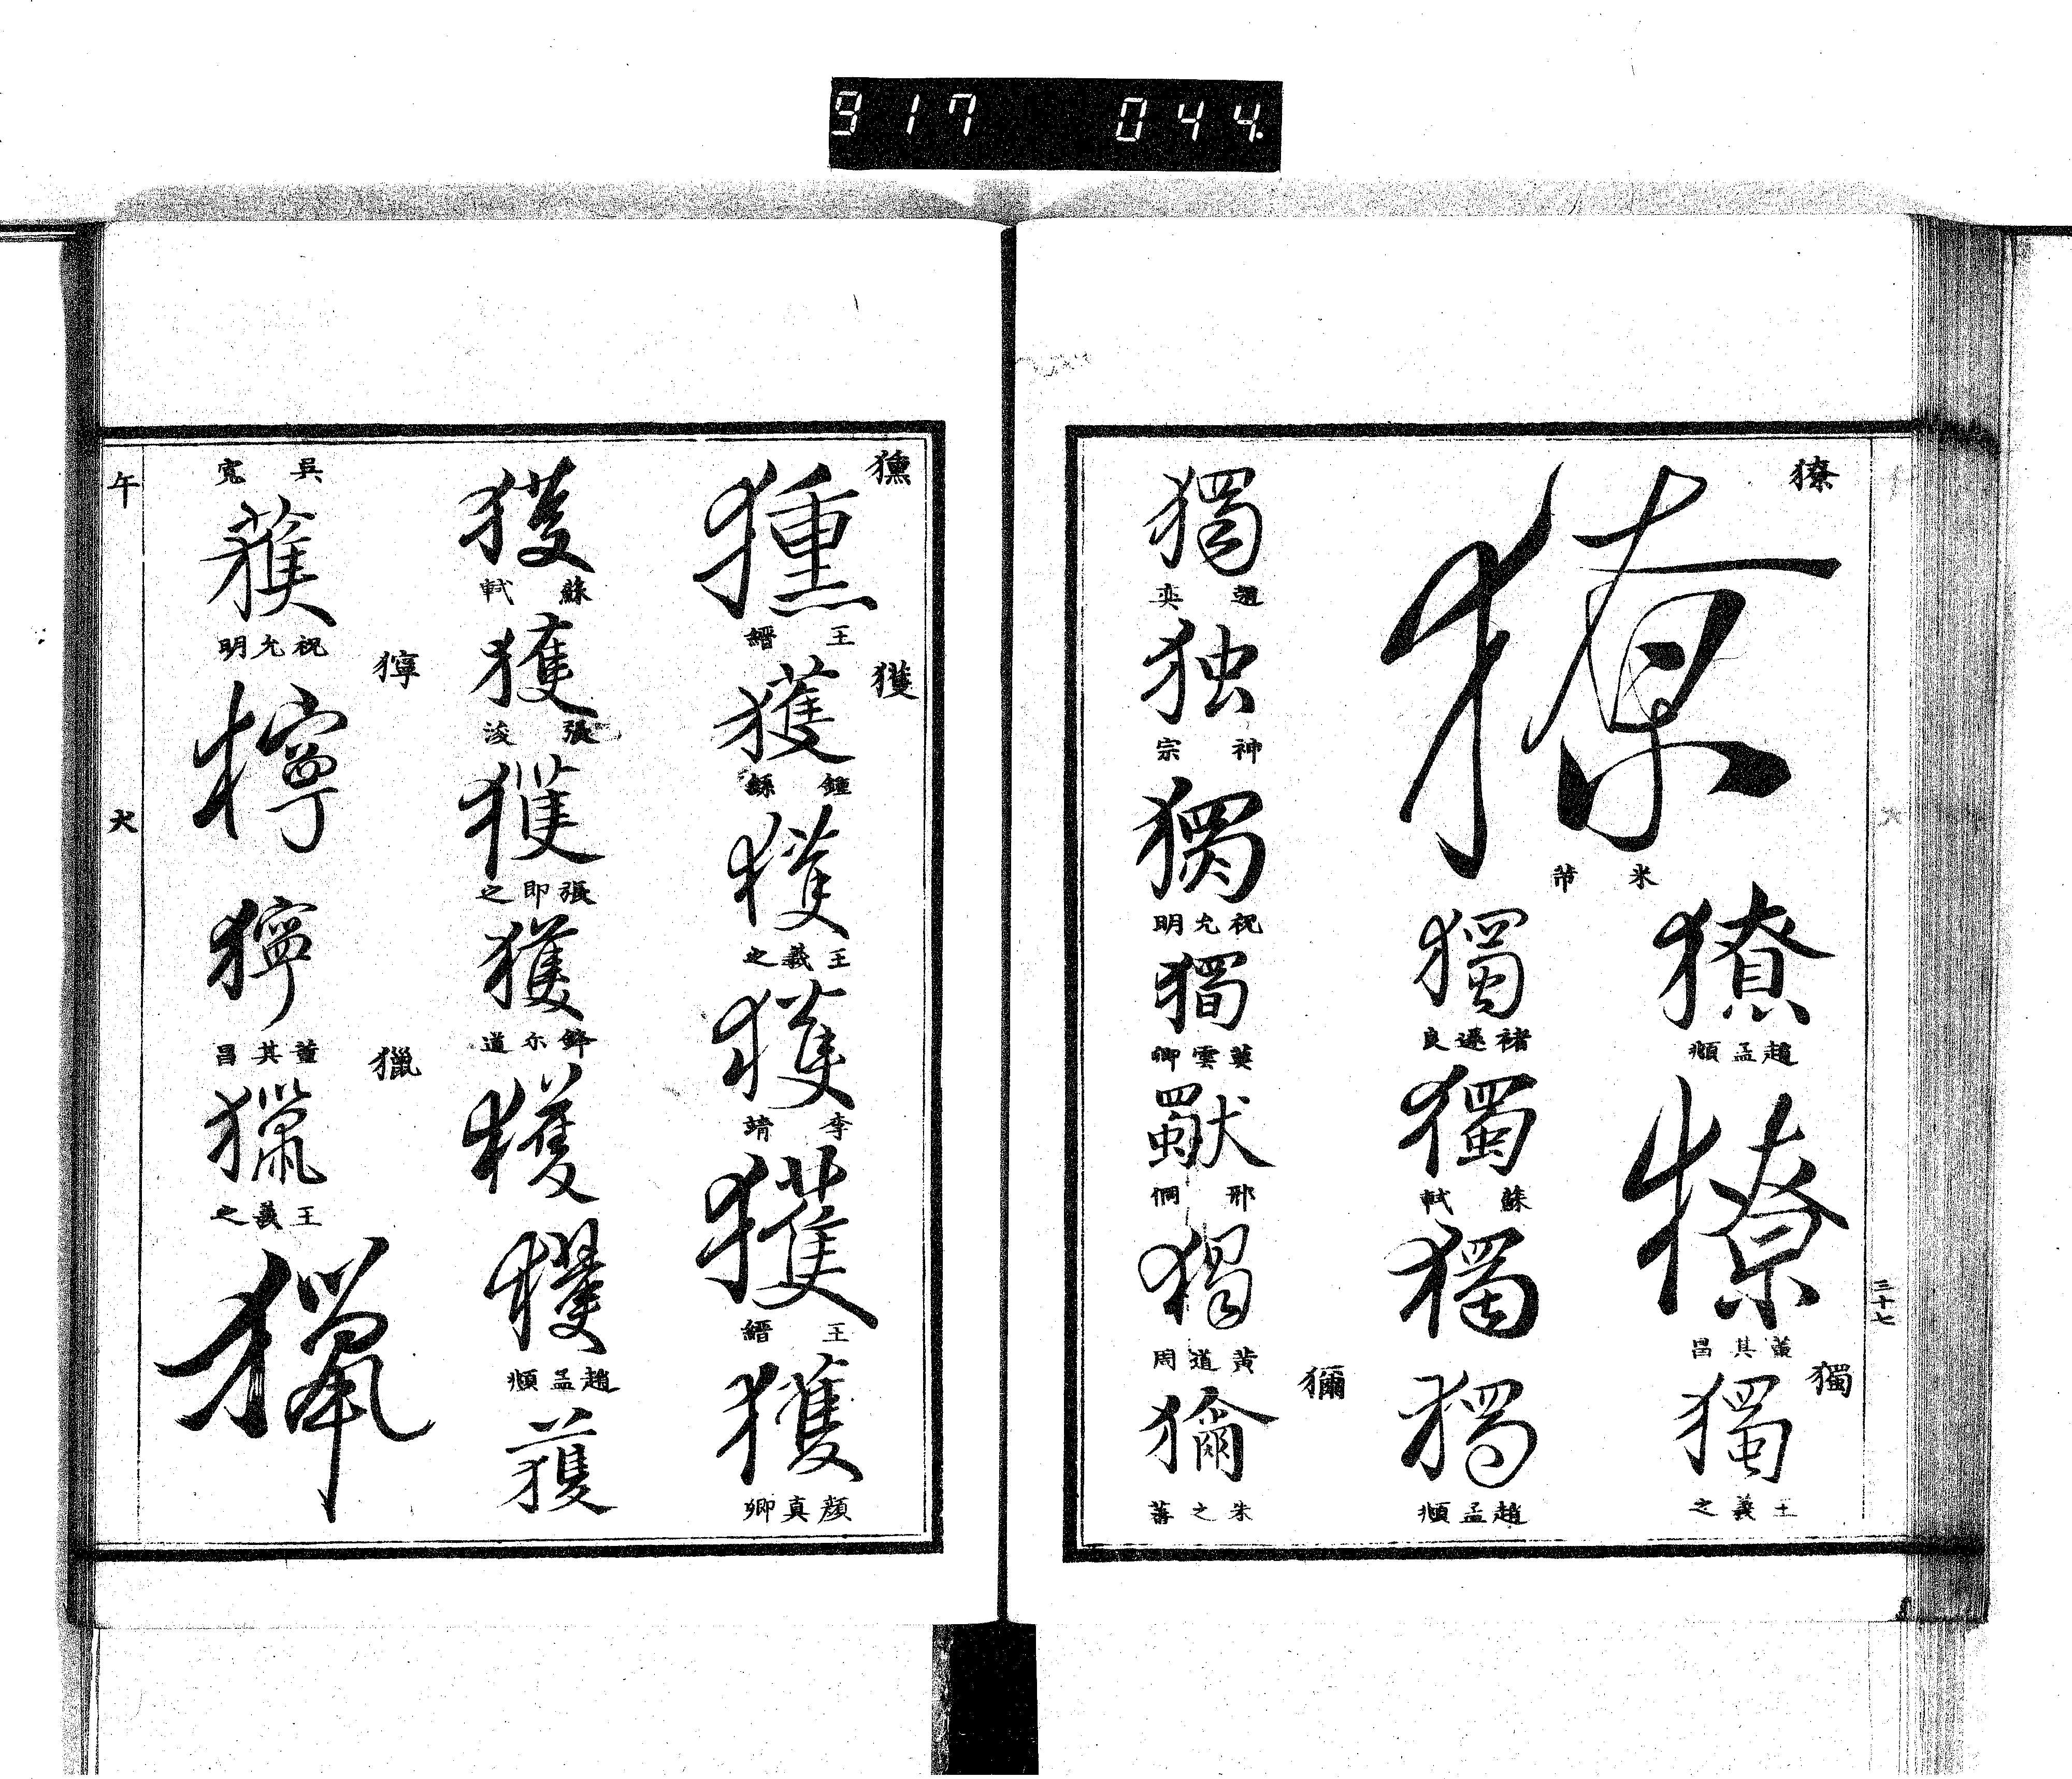 917 044.
獠
獠
米芾
獠
趙孟頫
獠
董其昌
獨
獨
王羲之
獨
褚遂良
獨
蘇軾
獨
獨
趙孟頫
獨
趙奕
独
神宗
獨
祝允明
獨
莫雲卿
獨
邢侗
獨
黃道周
獮
獮
朱之蕃
三十七
獯
獯
王縉
獲
獲
鍾繇
獲
王羲之
獲
李靖
獲
王縉
獲
顏真卿
獲
蘇軾
獲
張浚
獲
張即之
獲
獲
獲
趙孟頫
獲
吳寬
獲
祝允明
獰
獰
獰
董其昌
獵
獵
王羲之
獵
午
犬